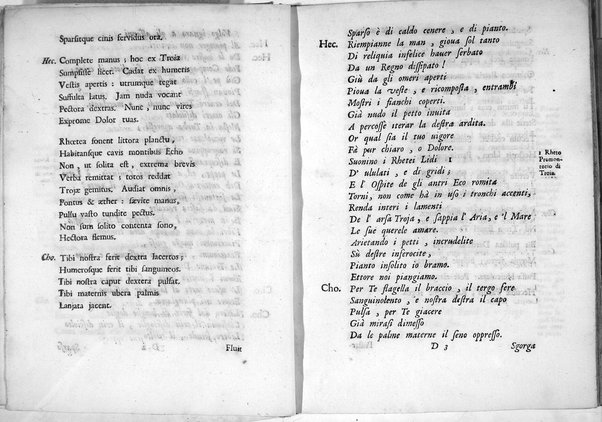 Sparsitque cinis fervidus ora.
Hec. Complete manus; hoc ex Troia
Sumpsisse licet. Cadat ex humeris
Vestis apertis; utrumque tegat
Suffulta latus. Jam nuda vocant
Pectora dextras. Nunc, nunc vires
Exprome Dolor tuas.
Rhœtea sonent littora planctu,
Habitansque cavis montibus Echo
Non, ut solita est, extrema brevis
Verba remittat; totos reddat
Trojæ gemitus. Audiat omnis,
Pontus & æther: sævite manus,
Pulsu vasto tundite pectus.
Non sum solito contenta sono,
Hectora flemus.
Cho. Tibi nostra ferit dextra lacertos;
Humerosque ferit tibi sanguineos.
Tibi nostra caput dextera pulsat.
Tibi maternis ubera palmis
Laniata jacent.
Fluit
Sparso è di caldo cenere, e di pianto.
Hec. Riempianne la man, giova sol tanto
Di reliquia infelice hauer serbato
Da un Regno dissipato!
Giù da gli omeri aperti
Piova la veste, e ricomposta, entrambi
Mostri i fianchi coperti.
Già nudo il petto invita
A percosse iterar la destra ardita.
Or qual sia il tuo vigore
Fà pur chiaro, o Dolore.
Suonino i Rhetei Lidi 1
D' ululati, e di gridi;
E l' Ospite de gli antri Eco romita
Torni, non come hà in uso i tronchi accenti,
Renda interi i lamenti
De l' arsa Troja, e sappia l' Aria, e 'l Mare
Le sue querele amare.
Arietando i petti, incrudelite
Sù destre inferocite,
Pianto insolito io bramo.
Ettore noi piangiamo.
Cho. Per Te flagella il braccio, il tergo fere
Sanguinolento, e nostra destra il capo
Pulsa, per Te giacere
Già mirasi dimesso
Da le palme materne il seno oppresso.
D 3 Sgorga
1 Rheto
Promon-
torio di
Troia.